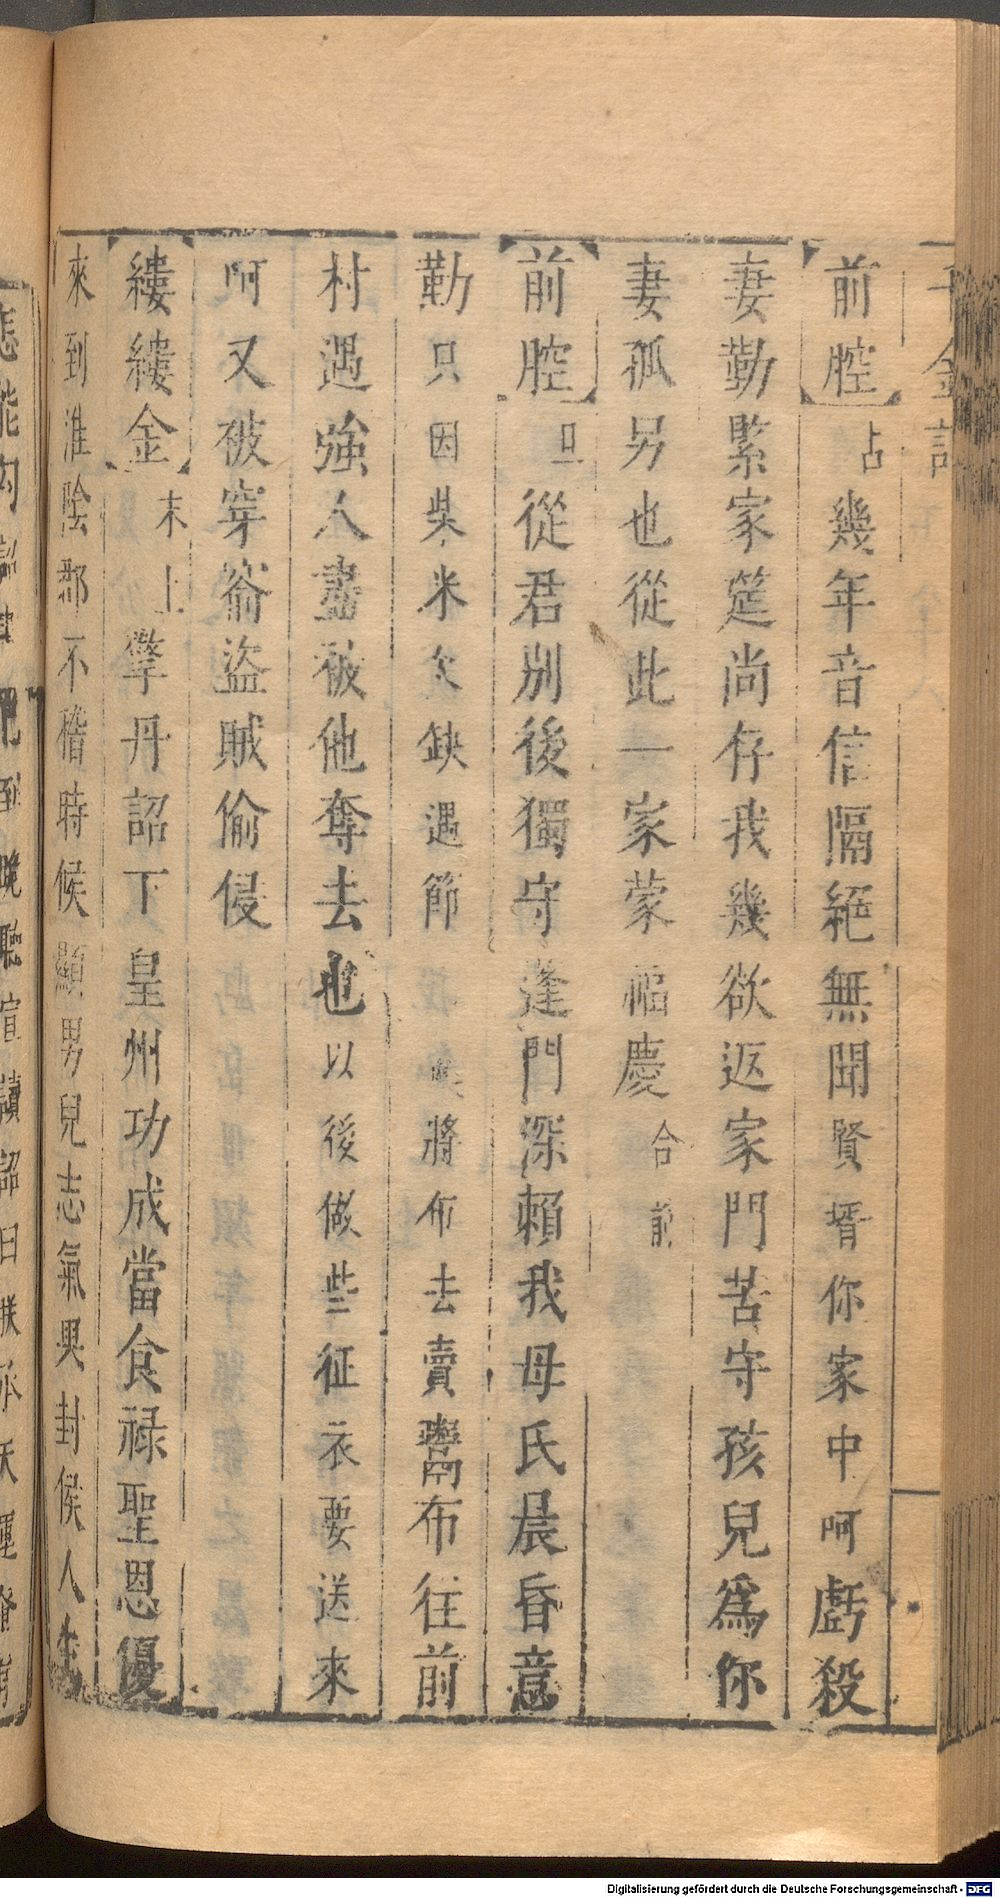 千金記
前腔占幾年音信隔絕無聞賢壻你家中呵虧殺
妻勤緊家筵尚存我幾欲返家門苦守孩兒爲你
妻孤另也從此一家蒙福慶合前
前腔旦從君別後獨守蓬門深賴我母氏晨昏意
勤只因柴米欠缺遇節將布去賣鬻布往前
村遇強人盡被他奪去也以後做些征衣要送來
呵又被穿窬盜賊偷侵
縷縷金末上擎丹詔下皇州功成當食祿聖恩優
來到淮陰郡不稽時候顯男兒志氣與封侯人生
Digitalisierung gefördert durch die Deutsche Forschungsgemeinschaft - DFG